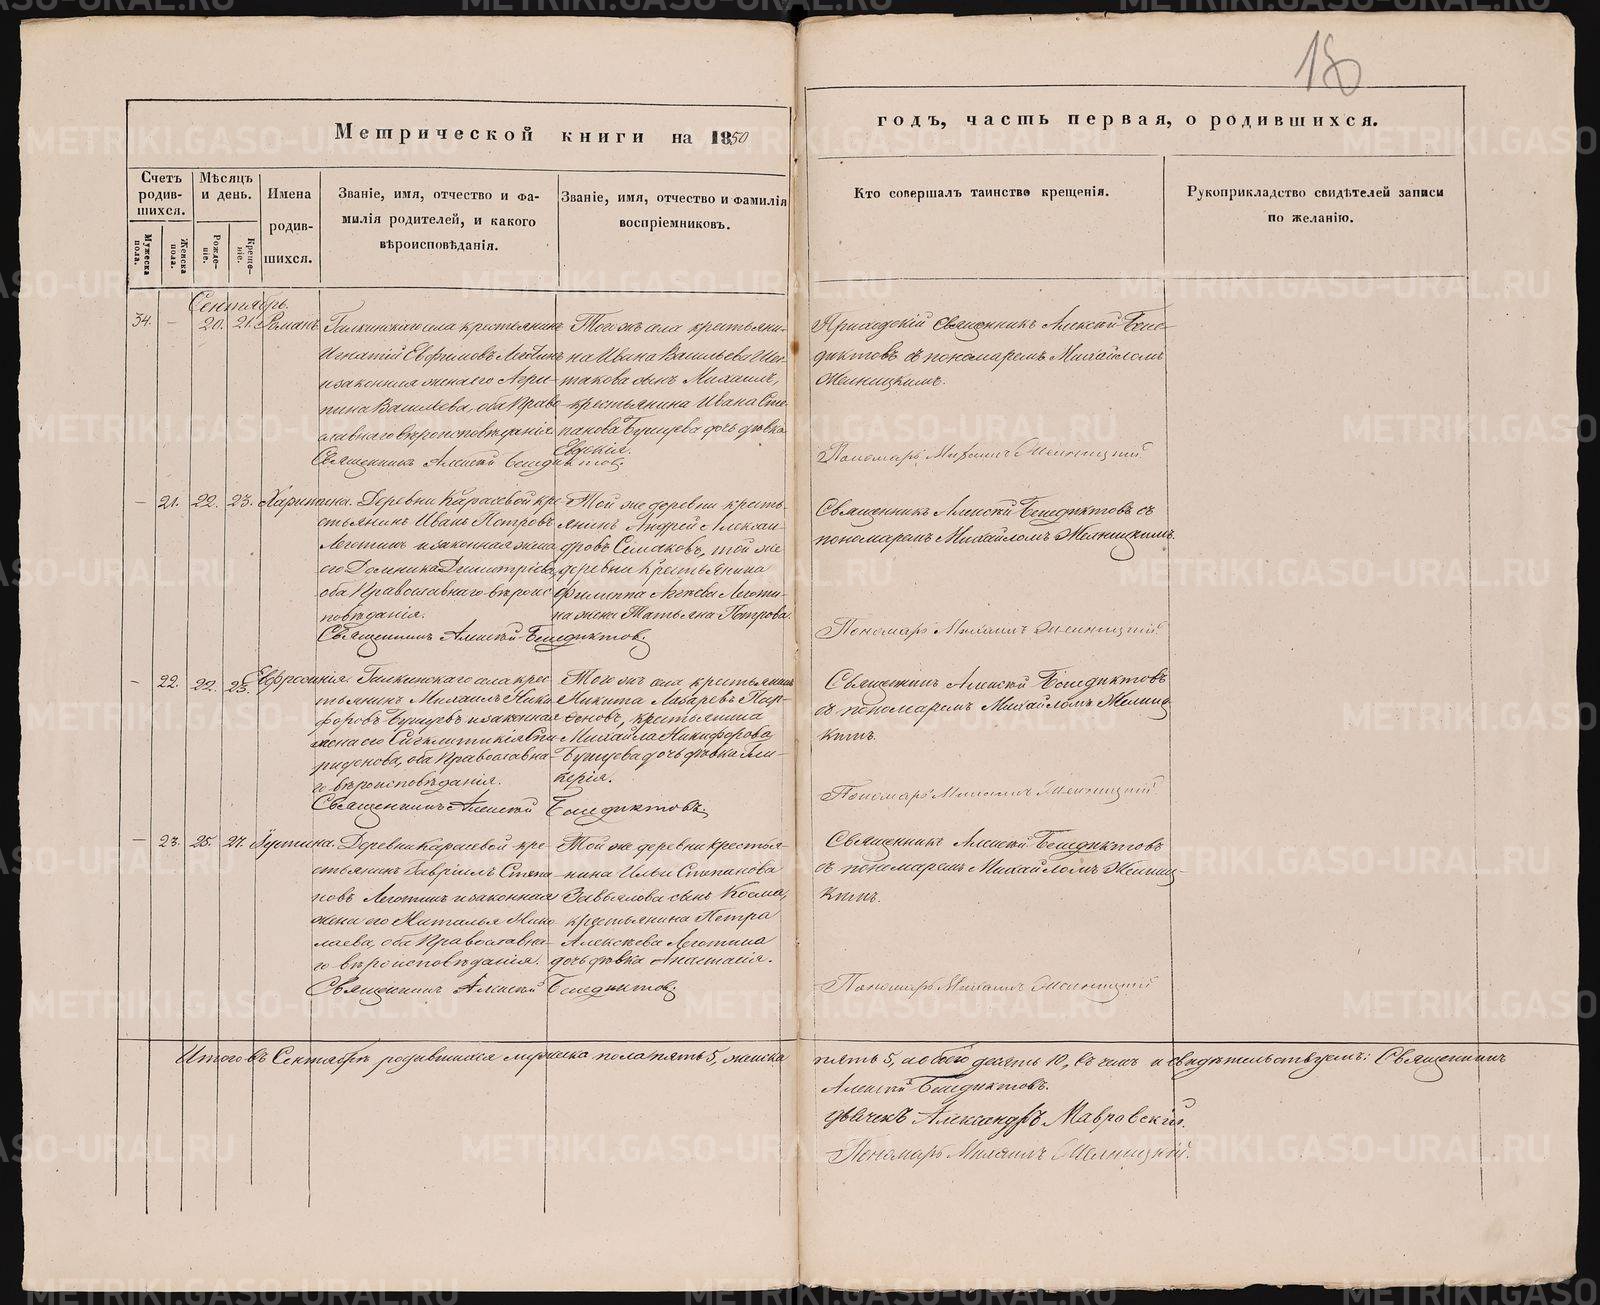 18
Метрической книги на 1850
годъ, часть первая, о родившихся.
Счетъ родив-шихся.
Мужеска пола.
Женска пола.
Мѣсяцъ и день.
Рожде-ніе.
Креще-ніе.
Имена родив-шихся.
Званіе, имя, отчество и фа-
милія родителей, и какого
вѣроисповѣданія.
Званіе, имя, отчество и фамилія
воспріемниковъ.
Кто совершалъ таинство крещенія.
Рукоприкладство свидѣтелей записи
по желанію.
Сентябрь.
34. — 20. 21. Романъ
Галкинскаго села крестьянинъ
Игнатій Евфимовъ
и законная жена его Агри-
пина Васильева, оба Право-
славнаго вѣроисповѣданія
Священникъ Алексѣй Бенедиктовъ.
Того жъ села крестьяни-
на Ивана Васильева
сынъ Михаилъ,
крестьянина Ивана Сте-
панова Бунцева дочь дѣвка
Евдокія.
Приходскій Священникъ Алексѣй Бене-
диктовъ съ пономаремъ Михайломъ
Желницкимъ.
Пономарь Михаилъ Желницкій.
— 21. 22. 23. Харитина.
Деревни Карасевой кре-
стьянинъ Иванъ Петровъ
Леготинъ и законная жена
его Домника Димитріева,
оба Православнаго вѣроис-
повѣданія.
Священникъ Алексѣй Бенедиктовъ.
Той же деревни кресть-
янинъ Андрей Алексан-
дровъ Симаковъ, той же
деревни крестьянина
Филиппа Леготи-
на жена Татьяна Петрова.
Священникъ Алексѣй Бенедиктовъ съ
пономаремъ Михайломъ Желницкимъ.
Пономарь Михаилъ Желницкій.
— 22. 22. 23. Евфросинія.
Галкинскаго села крес-
тьянинъ Михаилъ Ники-
форовъ Бунцевъ и законная
жена его Сигклитикія Спи-
ридонова, оба Православна-
го вѣроисповѣданія.
Священникъ Алексѣй Бенедиктовъ.
Того жъ села крестьянинъ
Никита Лазаревъ Пар-
феновъ, крестьянина
Михайла Никифорова
Бунцева дочь дѣвка Гли-
керія.
Священникъ Алексѣй Бенедиктовъ
съ пономаремъ Михайломъ Желниц-
кимъ.
Пономарь Михаилъ Желницкій
— 23. 25. 27. Іустина.
Деревни Карасевой кре-
стьянинъ Гавріилъ Степа-
новъ Леготинъ и законная
жена его Наталья Нико-
лаева, оба Православна-
го вѣроисповѣданія.
Священникъ Алексѣй Бенедиктовъ.
Той же деревни крестья-
нина Ильи Степанова
Завьялова сынъ Косма,
крестьянина Петра
Алексѣева Леготина
дочь дѣвка Анастасія.
Священникъ Алексѣй Бенедиктовъ
съ пономаремъ Михайломъ Желниц-
кимъ.
Пономарь Михаилъ Желницкій
Итого въ Сентябрѣ родившихся мужеска пола пять 5, женска
пять 5, а обоего десять 10, въ чемъ и свидѣтельствуемъ: Священникъ
Алексѣй Бенедиктовъ.
дьячекъ Александръ Мавровскій.
Пономарь Михаилъ Желницкій.
METRIKI.GASO-URAL.RU